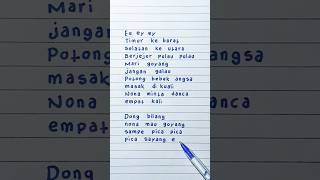 Ee ey ey
Timor ke barat
Selatan ke utara
Berjejer pulau pulau
Mari goyang
jangan galau
Potong bebek angsa
masak di kuali
Nona minta danca
empat kali
Dong bilang
nona mau goyang
sampe pica pica
pica sayang e